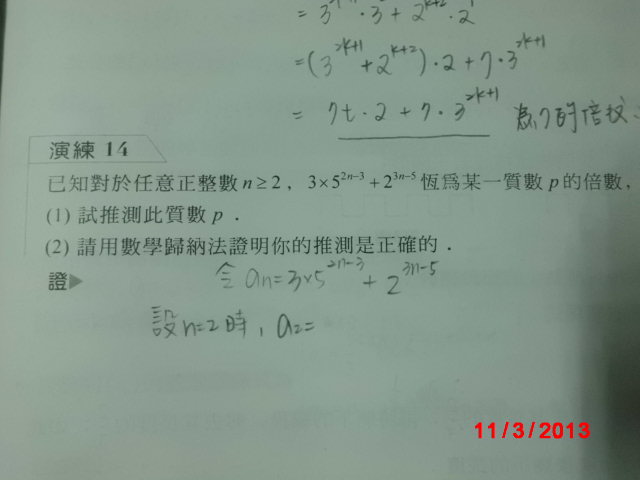 = 3^{2k+1}·3²+2^{k+2}·2
=(3^{2k+1}+2^{k+2})·2+7·3^{2k+1}
= 7t·2+7·3^{2k+1} 為7的倍數.
演練 14
已知對於任意正整數 n ≥ 2，3×5^{2n−3}+2^{3n−5} 恆為某一質數 p 的倍數，
(1) 試推測此質數 p．
(2) 請用數學歸納法證明你的推測是正確的．
證▶ 令 an=3×5^{2n-3}+2^{3n-5}
設n=2時, a2=
11/3/2013